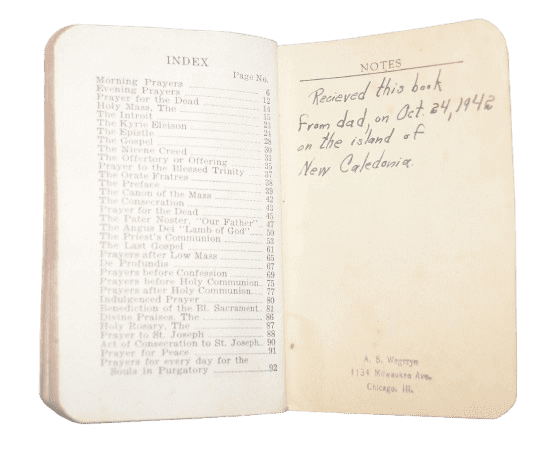 INDEX
Page No.
Morning Prayers 6
Evening Prayers 12
Prayer for the Dead 14
Holy Mass, The 15
The Introit 21
The Kyrie Eleison 24
The Epistle 28
The Gospel 30
The Nicene Creed 31
The Offertory or Offering 35
Prayer to the Blessed Trinity 37
The Orate Fratres 38
The Preface 39
The Canon of the Mass 42
The Consecration 43
Prayer for the Dead 45
The Pater Noster, "Our Father" 47
The Angus Dei "Lamb of God" 50
The Priest's Communion 53
The Last Gospel 61
Prayers after Low Mass 65
De Profundis 67
Prayers before Confession 69
Prayers before Holy Communion 75
Prayers after Holy Communion 77
Indulgenced Prayer 80
Benediction of the Bl. Sacrament 81
Divine Praises, The 86
Holy Rosary, The 87
Prayer to St. Joseph 88
Act of Consecration to St. Joseph 90
Prayer for Peace 91
Prayers for every day for the
Souls in Purgatory 92
NOTES
Recieved this book
from dad, on Oct. 24, 1942
on the island of
New Caledonia
A. S. Wegrzyn
1134 Milwaukee Ave.
Chicago, Ill.